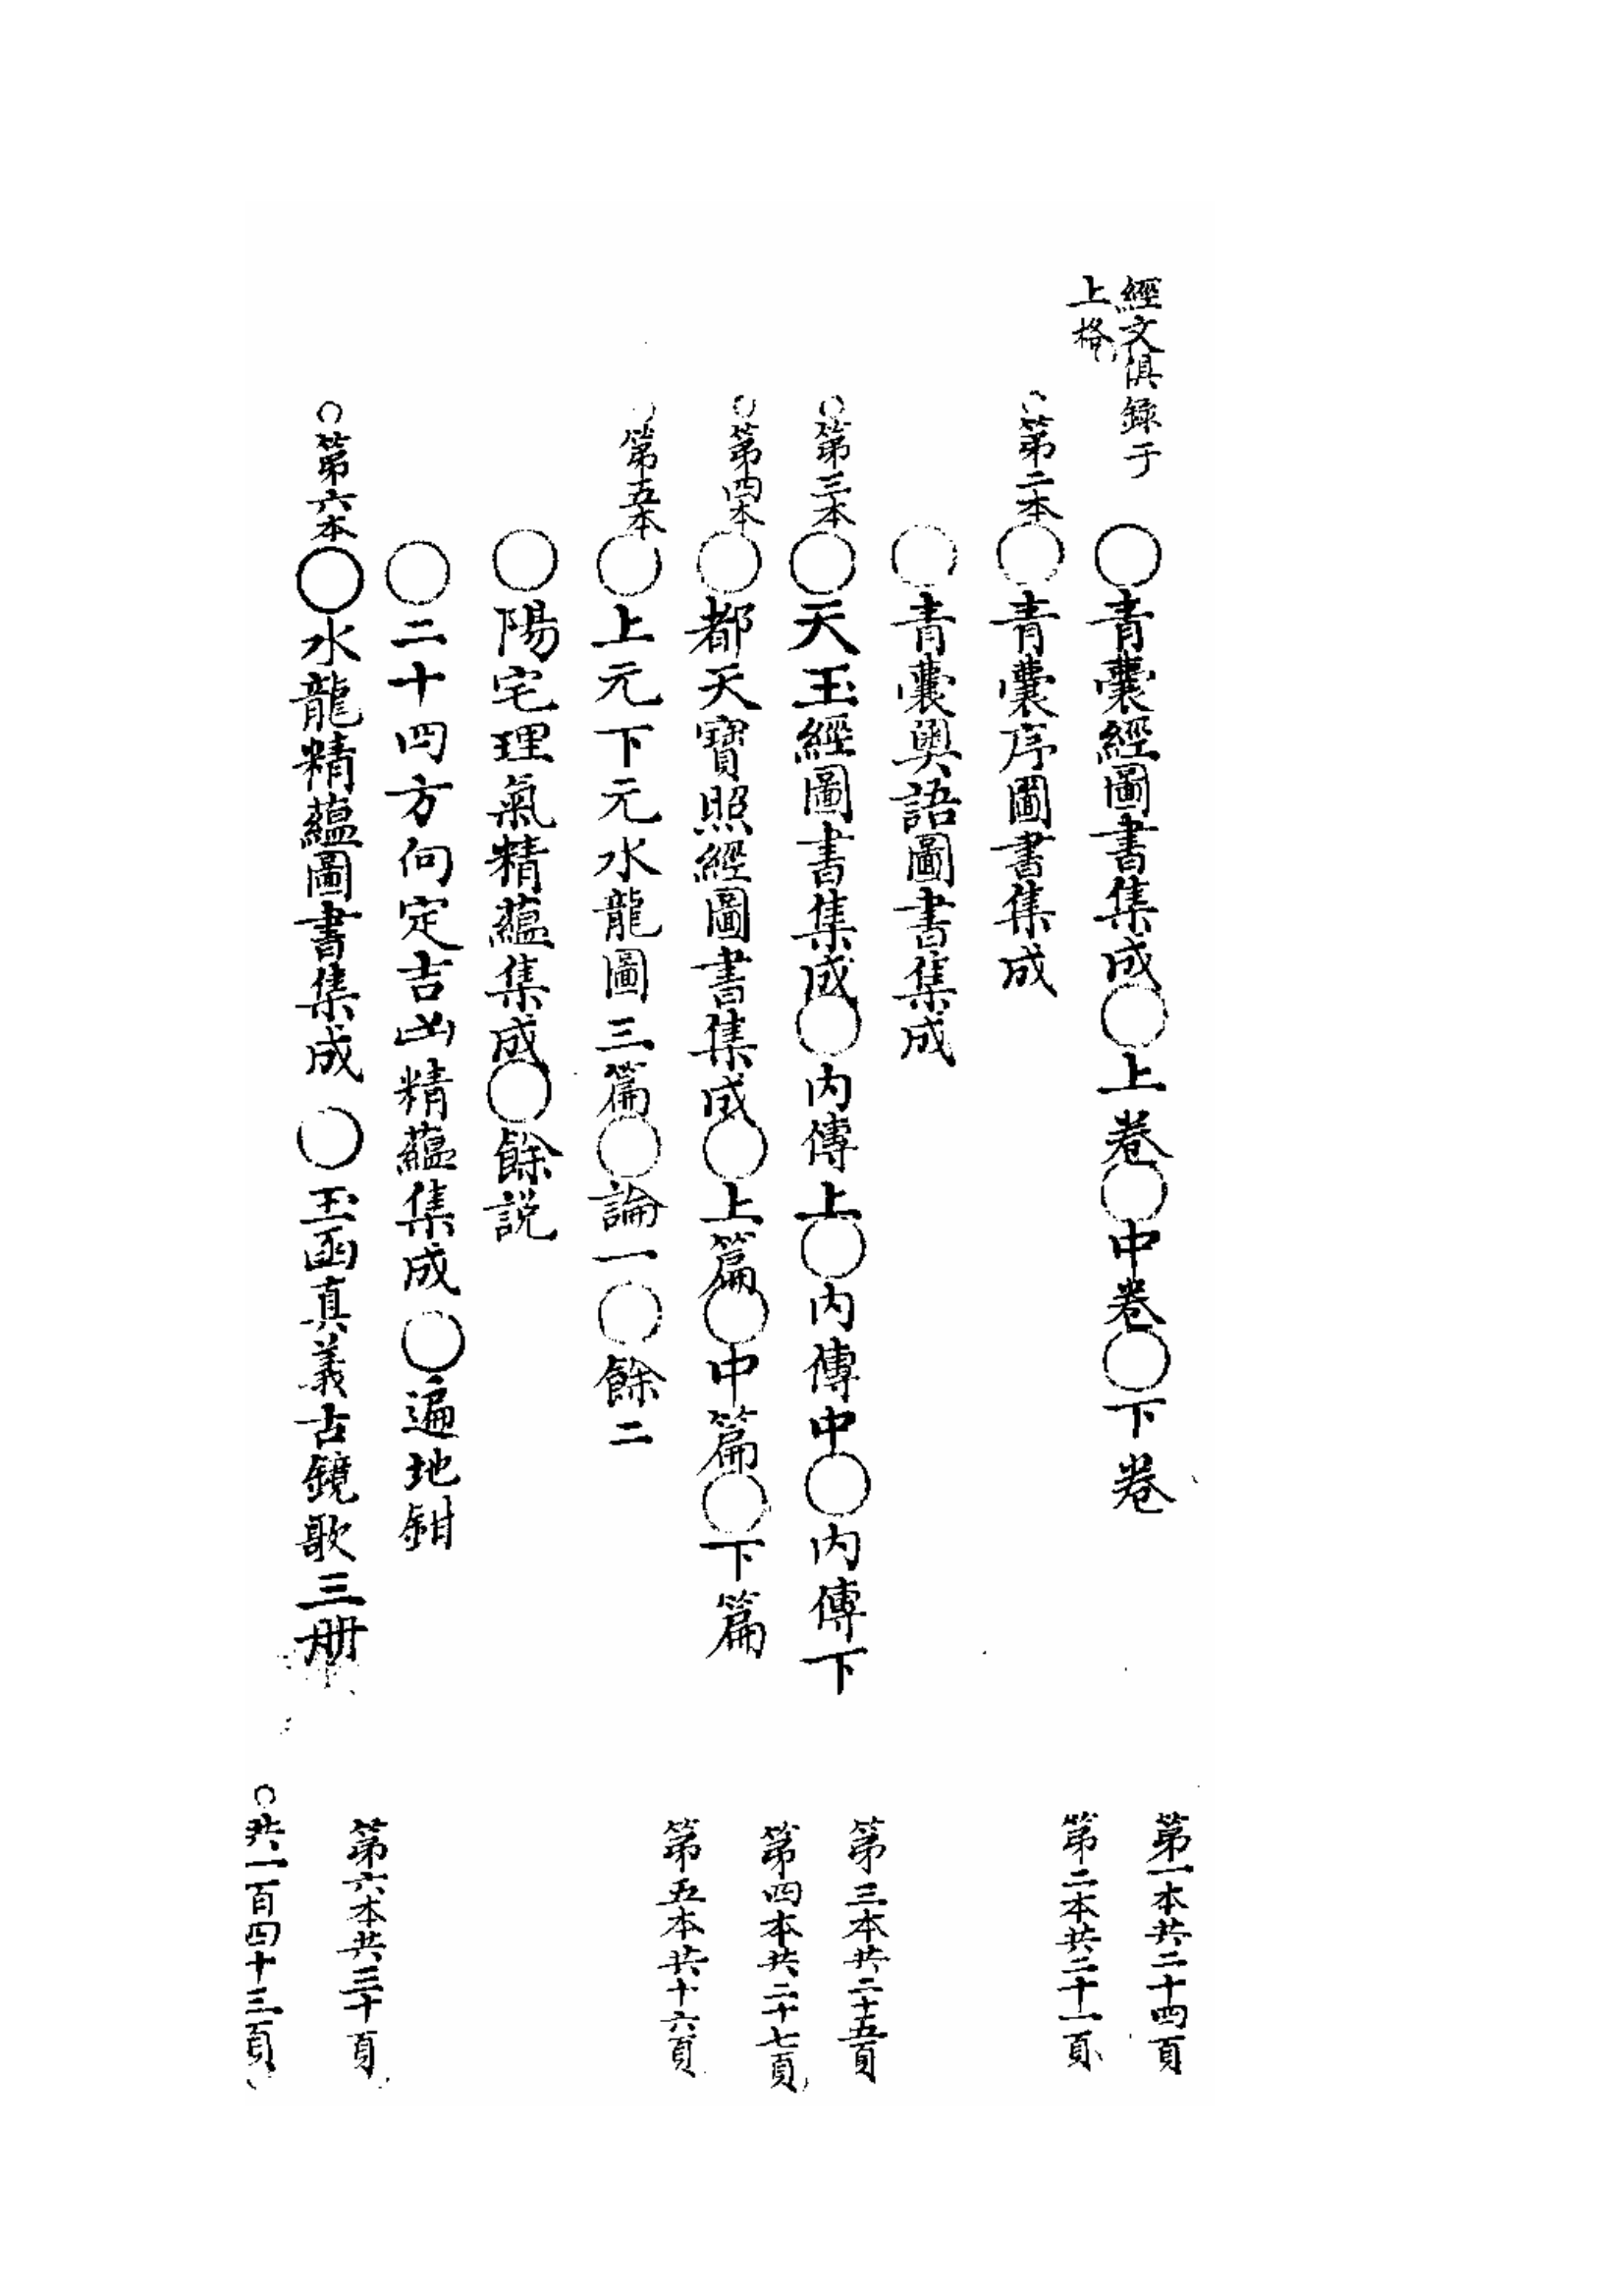 經文俱錄于
上格
○青囊經圖書集成○上卷○中卷○下卷
第一本共二十四頁
○第二本○青囊序圖書集成
第二本共二十一頁
○青囊奧語圖書集成
○第三本○天玉經圖書集成○內傳上○內傳中○內傳下
第三本共二十五頁
○第四本○都天寶照經圖書集成○上篇○中篇○下篇
第四本共二十七頁
○第五本○上元下元水龍圖三篇○論一○餘二
第五本共十六頁
○陽宅理氣精蘊集成○餘説
○二十四方向定吉凶精蘊集成○遍地鉗
○第六本○水龍精蘊圖書集成○玉函真義古鏡歌三册
第六本共三十頁
○共一百四十三頁